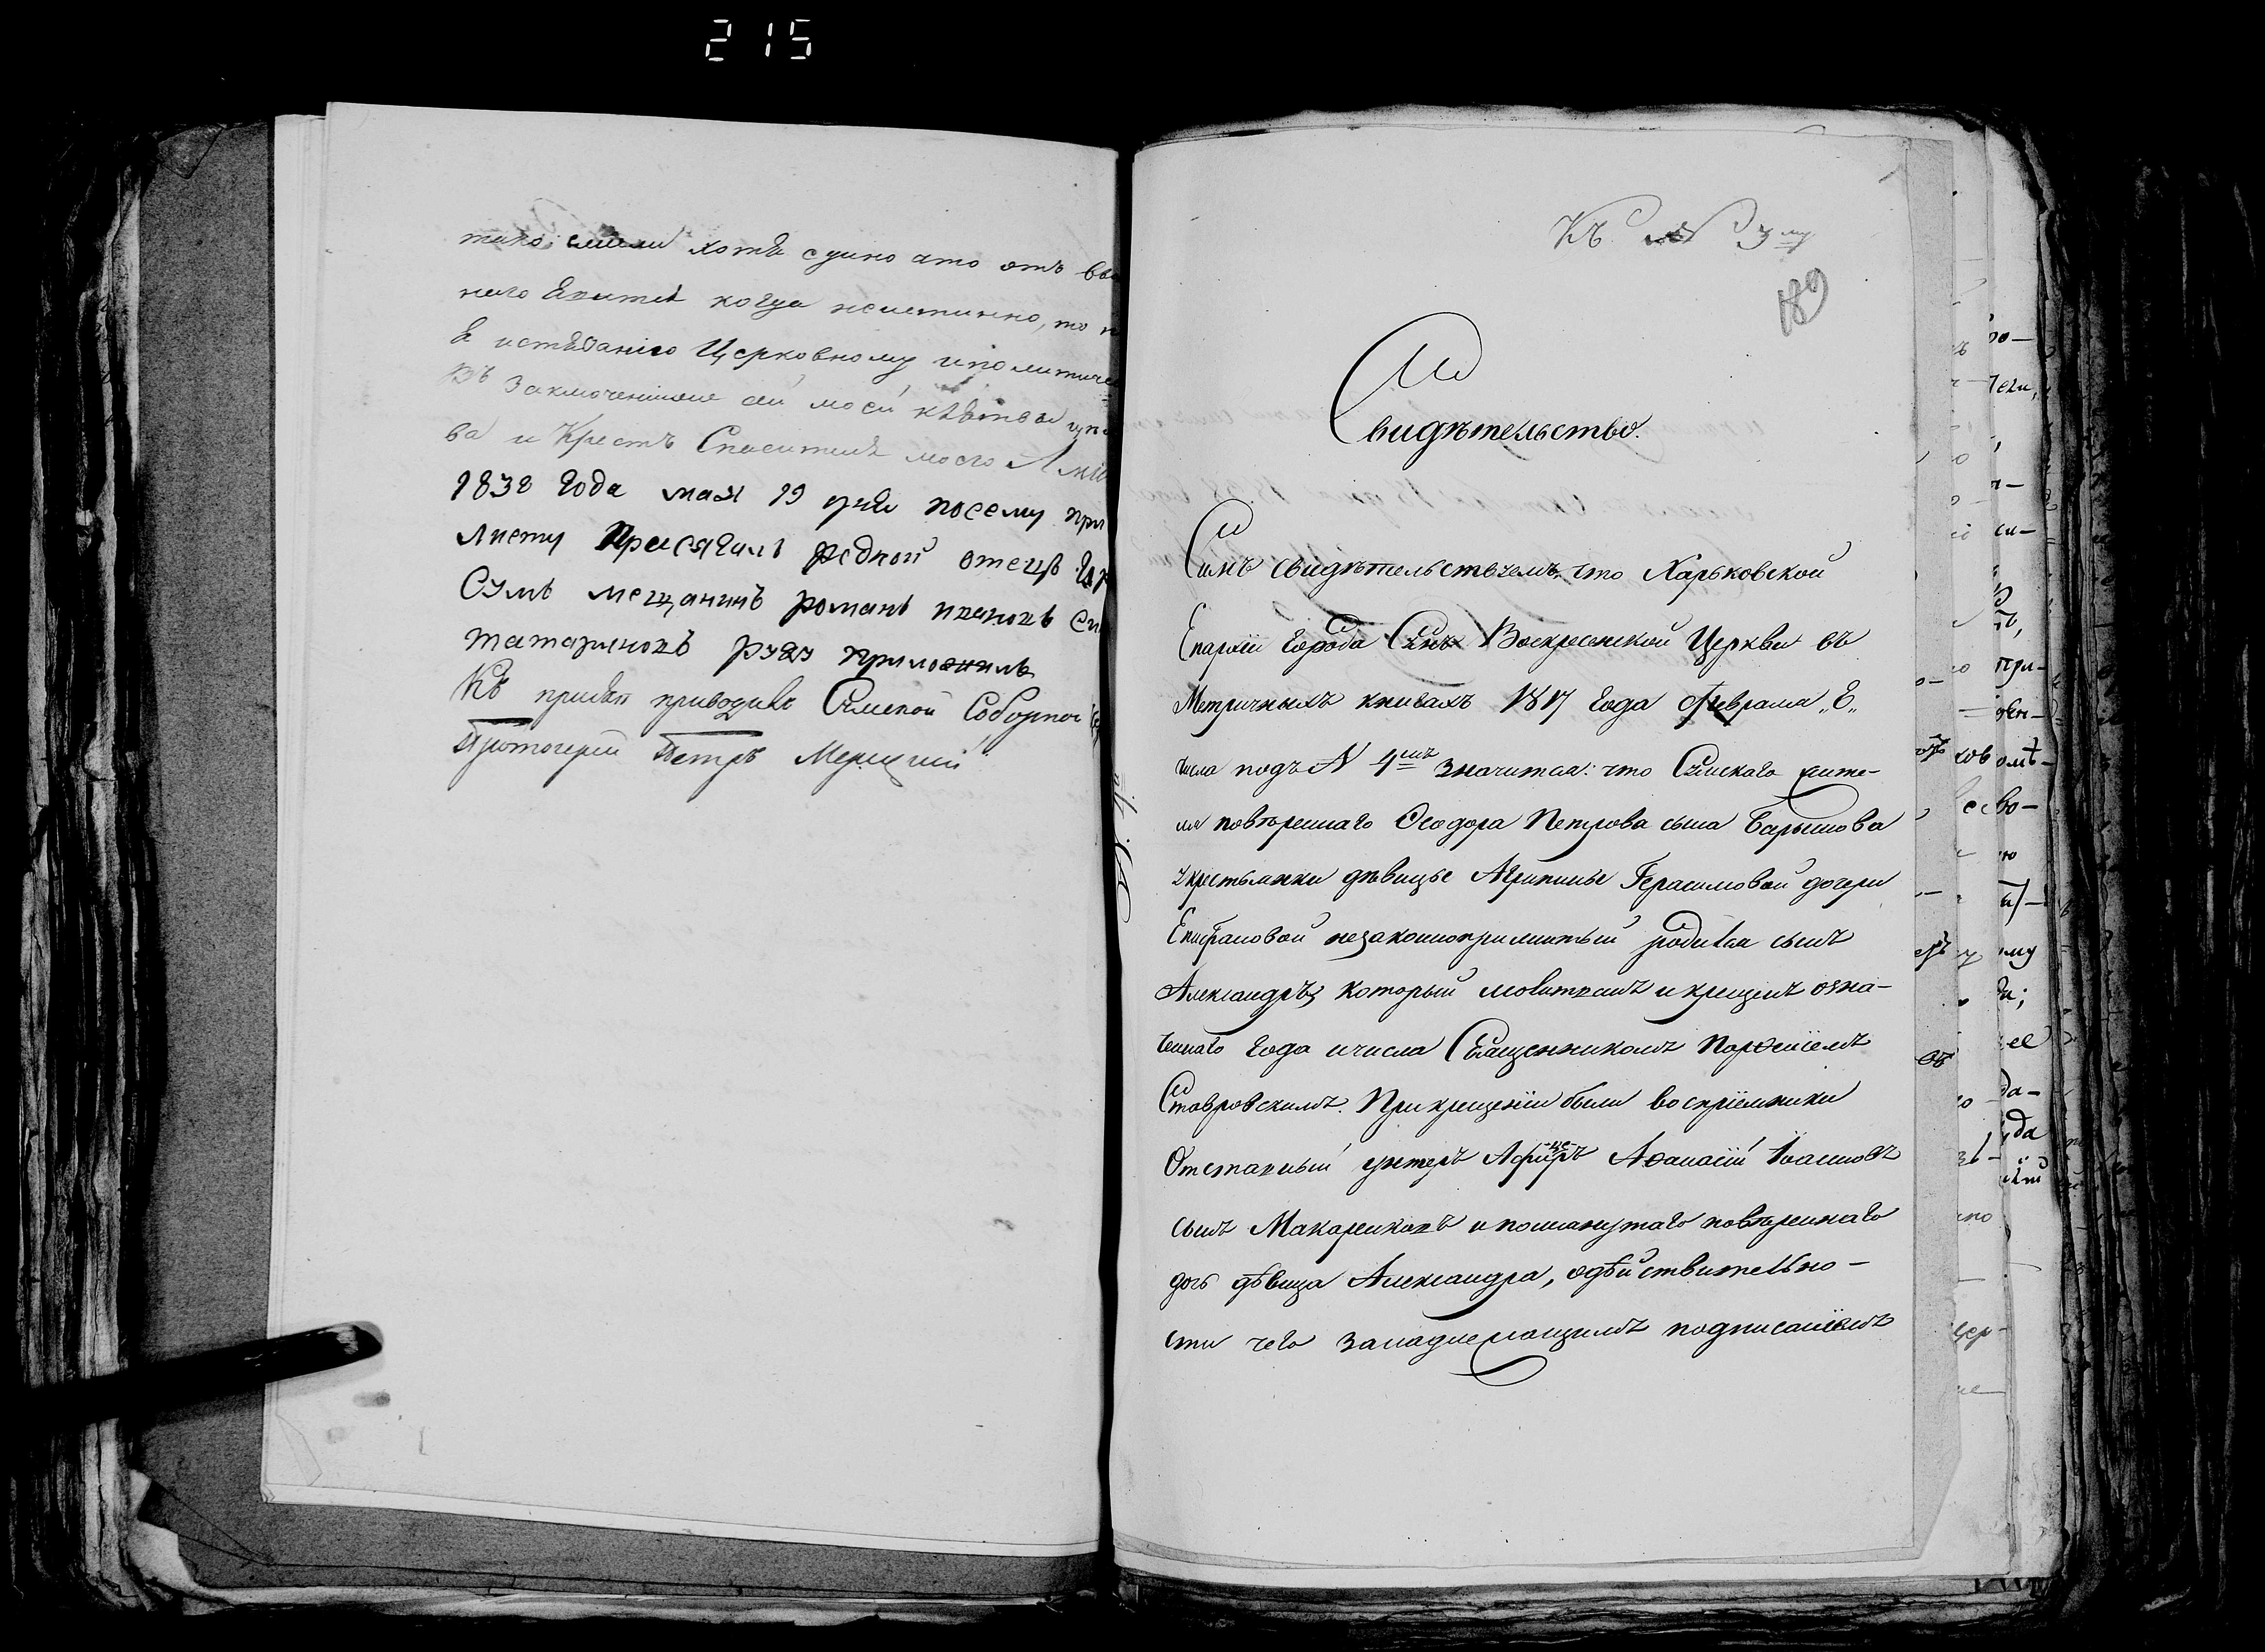 215
хотя едино ато отъ
него когда неистинно, то
я истязанію Церковному иполитиче
Въ Заключеніяже сей моей клятвы
ва и Крестъ Спасителя моего Ами
1838 года мая 19 дня посему при
листу Присягалъ родной отецъ
Сумъ мещанинъ романъ ивановъ сы
татариновъ руку приложилъ
Къ присягѣ приводилъ Сумской Соборной
Протоіерей Петръ
Къ № 3му
189
Свидѣтельство.
Симъ свидѣтельствуемъ, что Харьковской
Епархіи города Сумъ Воскресенской Церкви въ
Метричныхъ книгахъ 1817 года февраля „Е„
числа подъ № 4мъ значится: что Сумскаго жите-
ля повѣреннаго Ѳеодора Петрова сына Барышова
укрестьянки дѣвицы Агрипины Герасимовой дочери
Епифановой незаконноприжитый родился сынъ
Александръ, который молитвенъ и крещенъ озна-
ченнаго года ичисла Священникомъ Порѳиіемъ
Ставровскимъ. При крещеніи были воспріемники
Отставный унтеръ Афицеръ Аѳанасій Іоанновъ
сынъ Макаренковъ и помянутаго повѣреннаго
дочь дѣвица Александра, одѣйствительно-
сти чего занадлежащимъ подписаніемъ